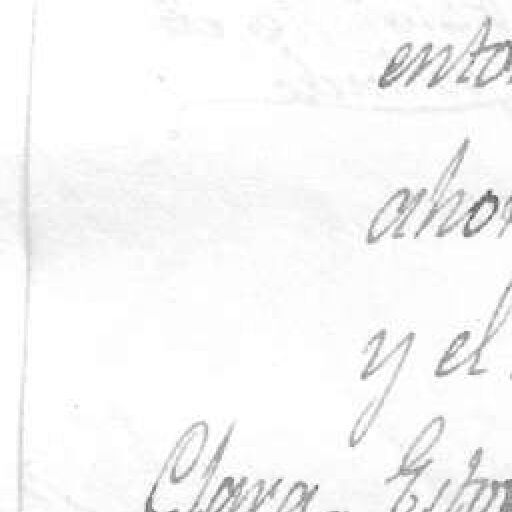 ento
ahor
y el
Clara. Esto